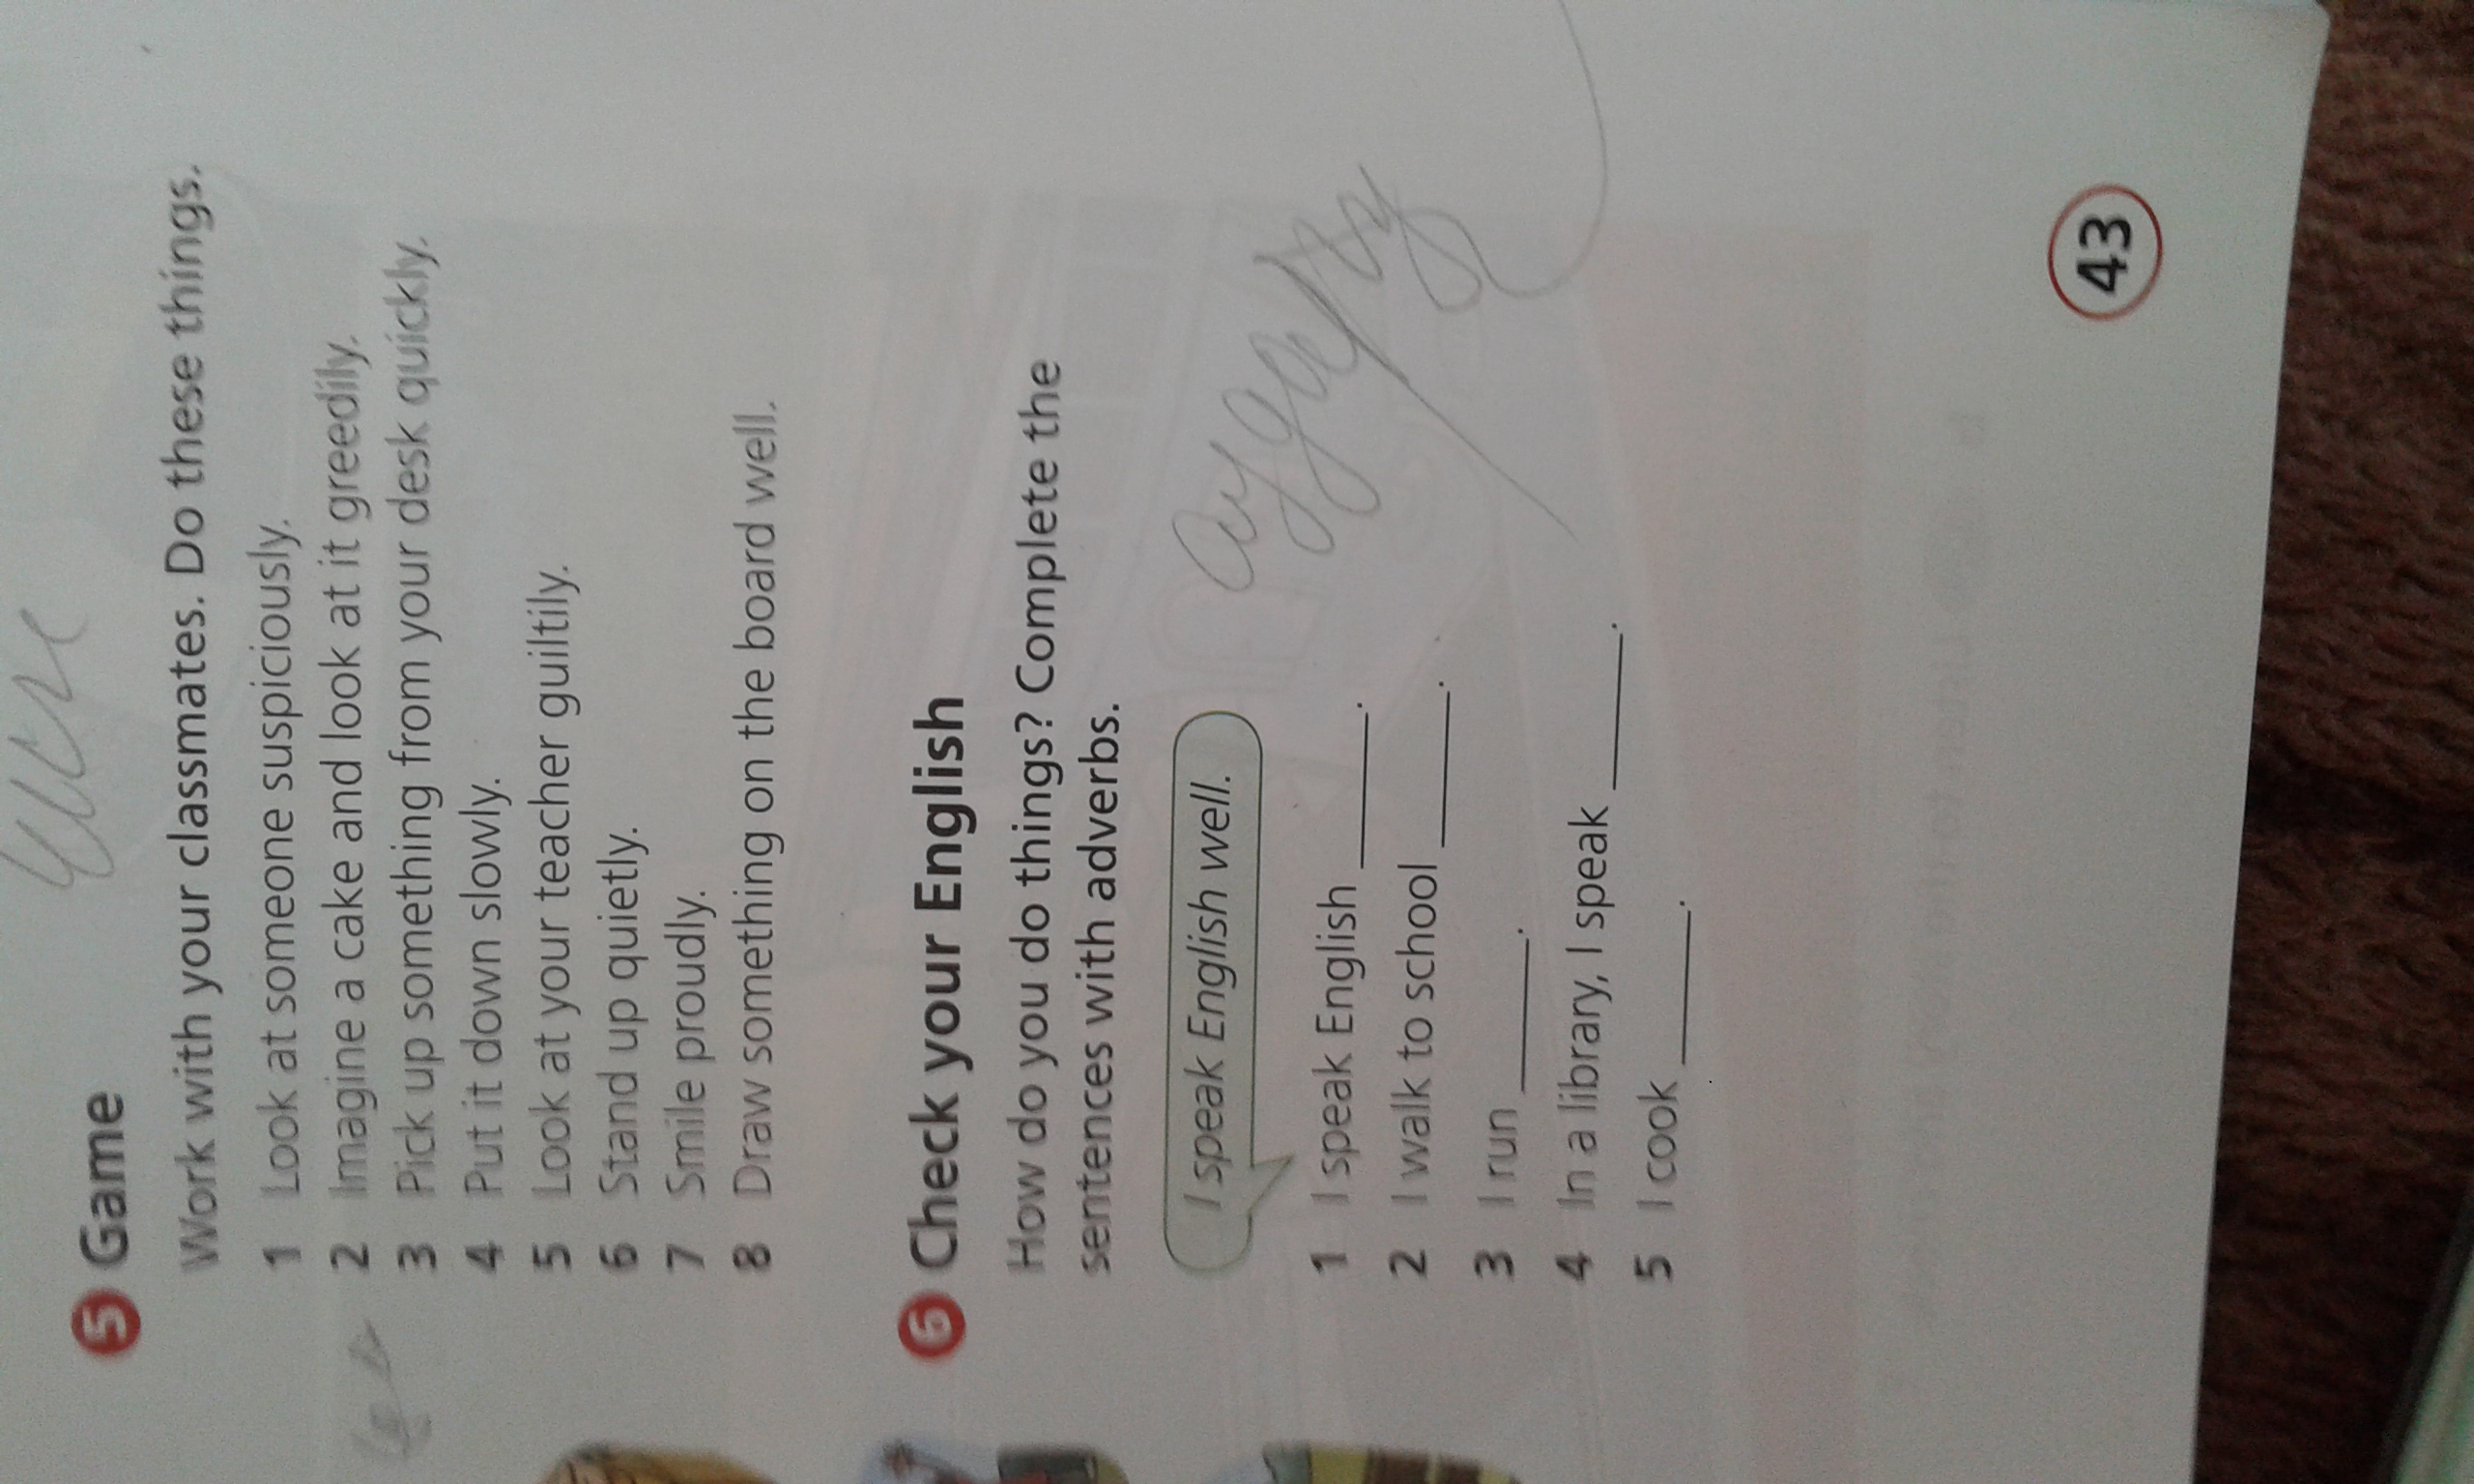 5 Game
Work with your classmates. Do these things.
1 Look at someone suspiciously.
2 Imagine a cake and look at it greedily.
3 Pick up something from your desk quickly.
4 Put it down slowly.
5 Look at your teacher guiltily.
6 Stand up quietly.
7 Smile proudly.
8 Draw something on the board well.
6 Check your English
How do you do things? Complete the
sentences with adverbs.
I speak English well.
1 I speak English ______.
2 I walk to school ______.
3 I run ______.
4 In a library, I speak ______.
5 I cook ______.
43